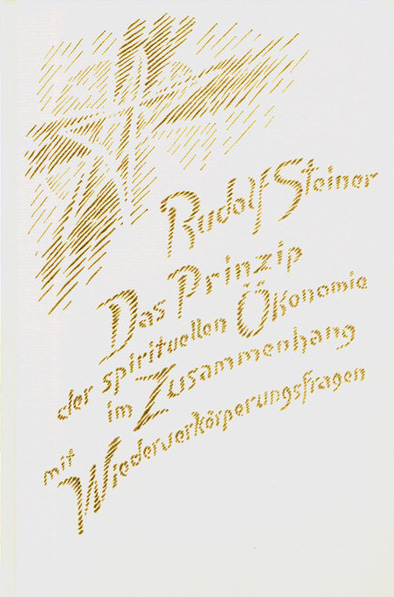 Rudolf Steiner
Das Prinzip
der spirituellen Ökonomie
im Zusammenhang
mit Wiederverkörperungsfragen